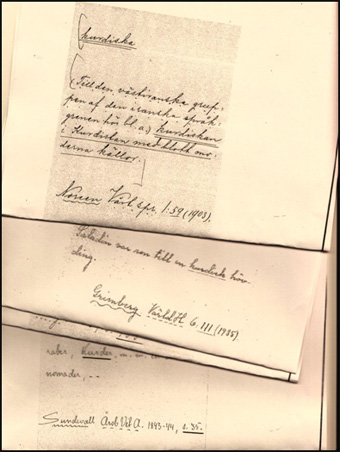 kurdiska
(Till den västiranska grup-
pen af den iranska språk-
grenen hör bl. a.) kurdiskan
i Kurdistan med blott mo-
derna källor.
Noreen Vårt spr. 1:59 (1903).
Saladin var son till en kurdisk höv-
ding.
Grimberg VärldH 6:111 (1935)
raber, kurder,
nomader, --
Sundevall ÅrsbVetA. 1843-44, s. 35.